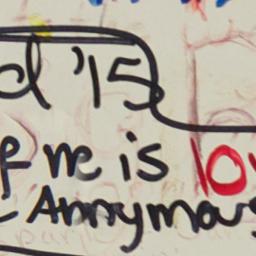 d '15
me is lo
Annymous